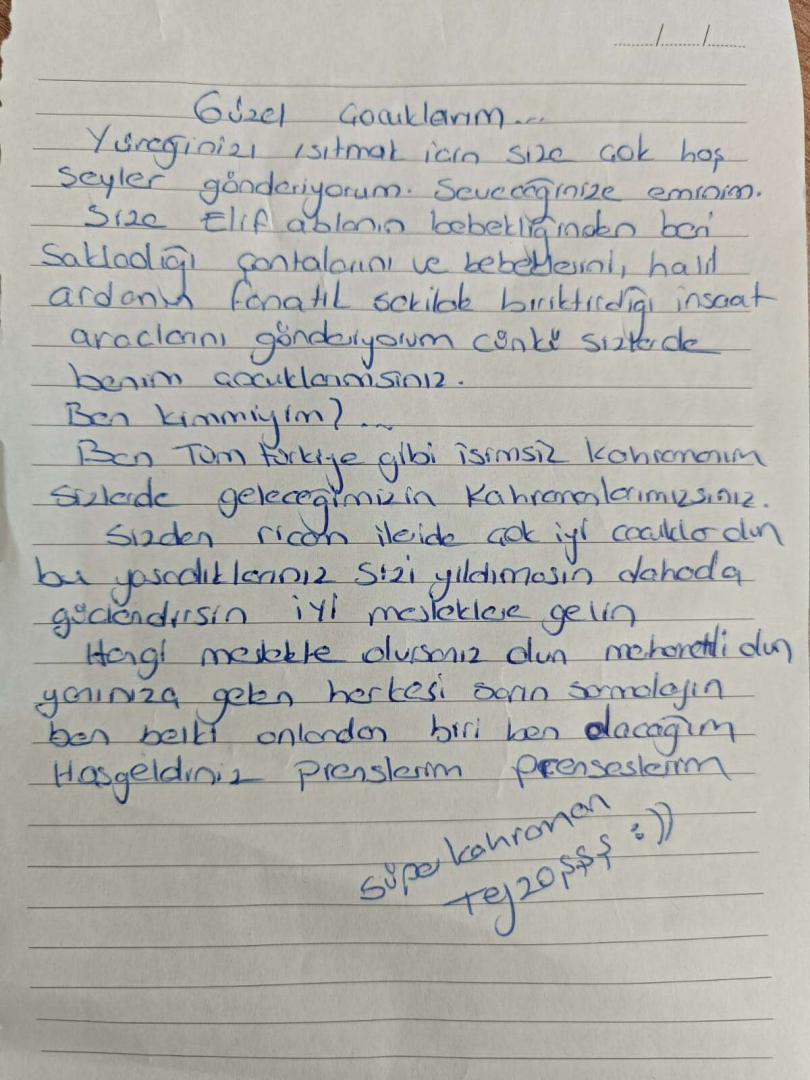 Güzel Çocuklarım...
Yüreğinizi ısıtmak için size çok hoş
şeyler gönderiyorum. Seveceğinize eminim.
Size Elif ablanın bebekliğinden beri
Sakladığı çantalarını ve bebeklerini, halil
ardanın fanatik şekilde biriktirdiği inşaat
araçlarını gönderiyorum çünkü sizlerde
benim çocuklarımsınız.
Ben kimmiyim? ...
Ben Tüm Türkiye gibi isimsiz kahramanım
sizlerde geleceğimizin Kahramanlarımızsınız.
Sizden ricam ileride çok iyi çocuklar olun
bu yaşadıklarınız Sizi yıldırmasın dahada
güçlendirsin iyi mesleklere gelin
Hangi meslekte olursanız olun maharetli olun
yanınıza gelen herkesi sarın sarmalayın
ben belki onlardan biri ben olacağım
Hoşgeldiniz Prenslerim Prenseslerim
Süper kahraman
:))